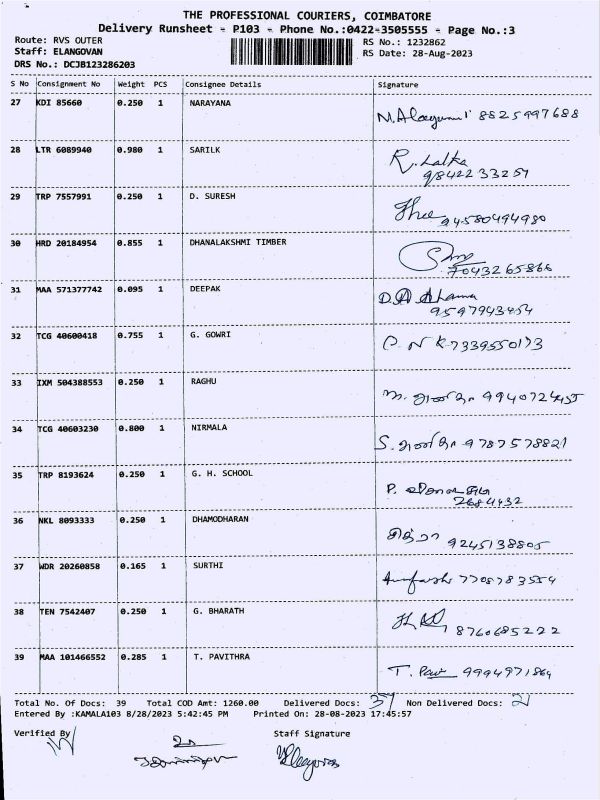 THE PROFESSIONAL COURIERS, COIMBATORE
Delivery Runsheet - P103 - Phone No.:0422-3505555 - Page No.:3
Route: RVS OUTER RS No.: 1232862
Staff: ELANGOVAN RS Date: 28-Aug-2023
DRS No.: DCJB123286203
S No Consignment No Weight PCS Consignee Details Signature
27 KDI 85660 0.250 1 NARAYANA 8825997688
28 LTR 6089940 0.980 1 SARILK R. Latka
9842233251
29 TRP 7557991 0.250 1 D. SURESH 94580494980
30 HRD 20184954 0.855 1 DHANALAKSHMI TIMBER
7043265866
31 MAA 571377742 0.095 1 DEEPAK
9597943454
32 TCG 40600418 0.755 1 G. GOWRI 7339550173
33 IXM 504388553 0.250 1 RAGHU 9940724455
34 TCG 40603230 0.800 1 NIRMALA 9787578821
35 TRP 8193624 0.250 1 G. H. SCHOOL
2684432
36 NKL 8093333 0.250 1 DHAMODHARAN
9245138805
37 WDR 20260858 0.165 1 SURTHI 7708783554
38 TEN 7542407 0.250 1 G. BHARATH
8760685222
39 MAA 101466552 0.285 1 T. PAVITHRA T. Pavi 9994971864
Total No. Of Docs: 39 Total COD Amt: 1260.00 Delivered Docs: 37 Non Delivered Docs: 2
Entered By :KAMALA103 8/28/2023 5:42:45 PM Printed On: 28-08-2023 17:45:57
Verified By Staff Signature